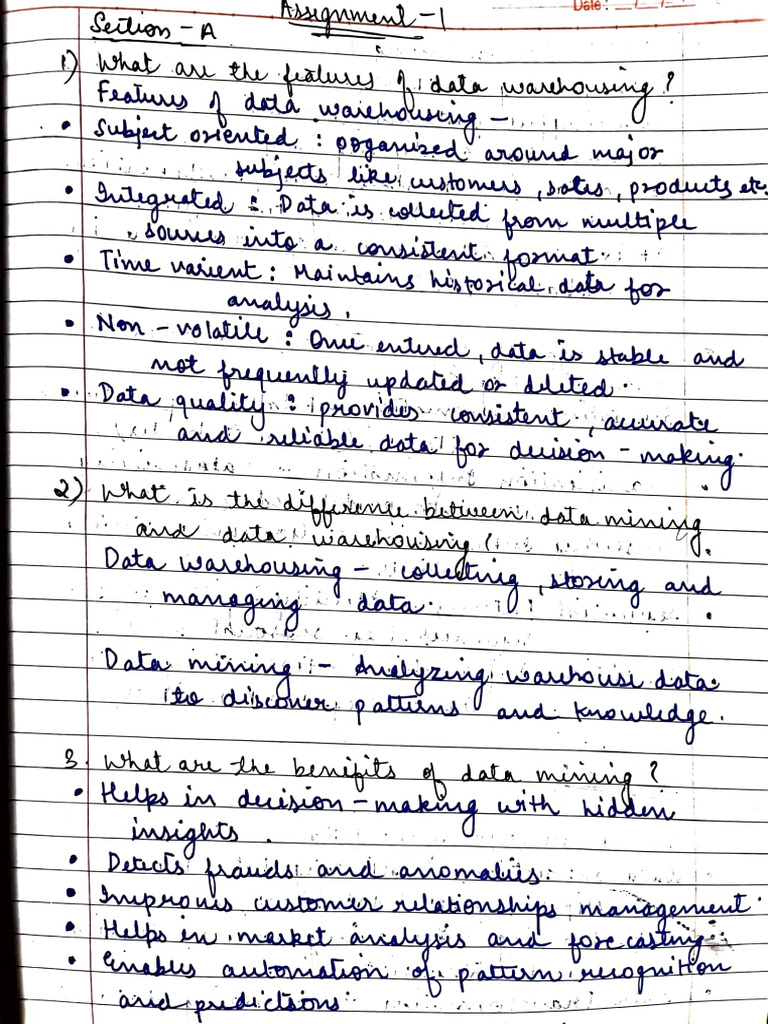 Assignment - 1
Date : __/__/__
Section - A
1) What are the features of data warehousing ?
Features of data warehousing -
• Subject oriented : ooganized around major
subjects like customers, sales, products etc.
• Integrated : Data is collected from multiple
sources into a consistent format.
• Time varient : Maintains historical data for
analysis.
• Non - volatile : Once entered, data is stable and
not frequently updated or deleted.
• Data quality : provides consistent, accurate
and reliable data for decision - making.
2) What is the difference between data mining
and data warehousing ?
Data warehousing - collecting, storing and
managing data.
Data mining - Analyzing warehouse data
to discover patterns and knowledge.
3. What are the benifits of data mining ?
• Helps in decision - making with hidden
insights.
• Detects frauds and anomalies.
• Improves customer relationships management.
• Helps in market analysis and forecasting
• Enables automation of pattern recognition
and predictions.